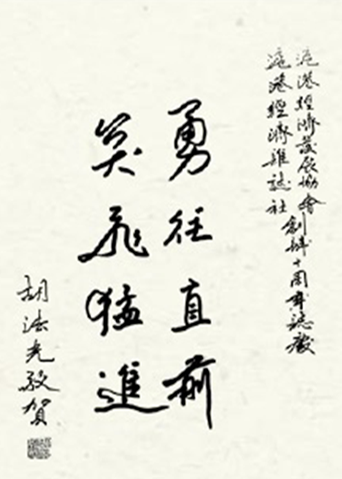 滬港經濟發展協會
滬港經濟雜誌社
創辦十周年誌慶
勇往直前
突飛猛進
胡法光敬賀